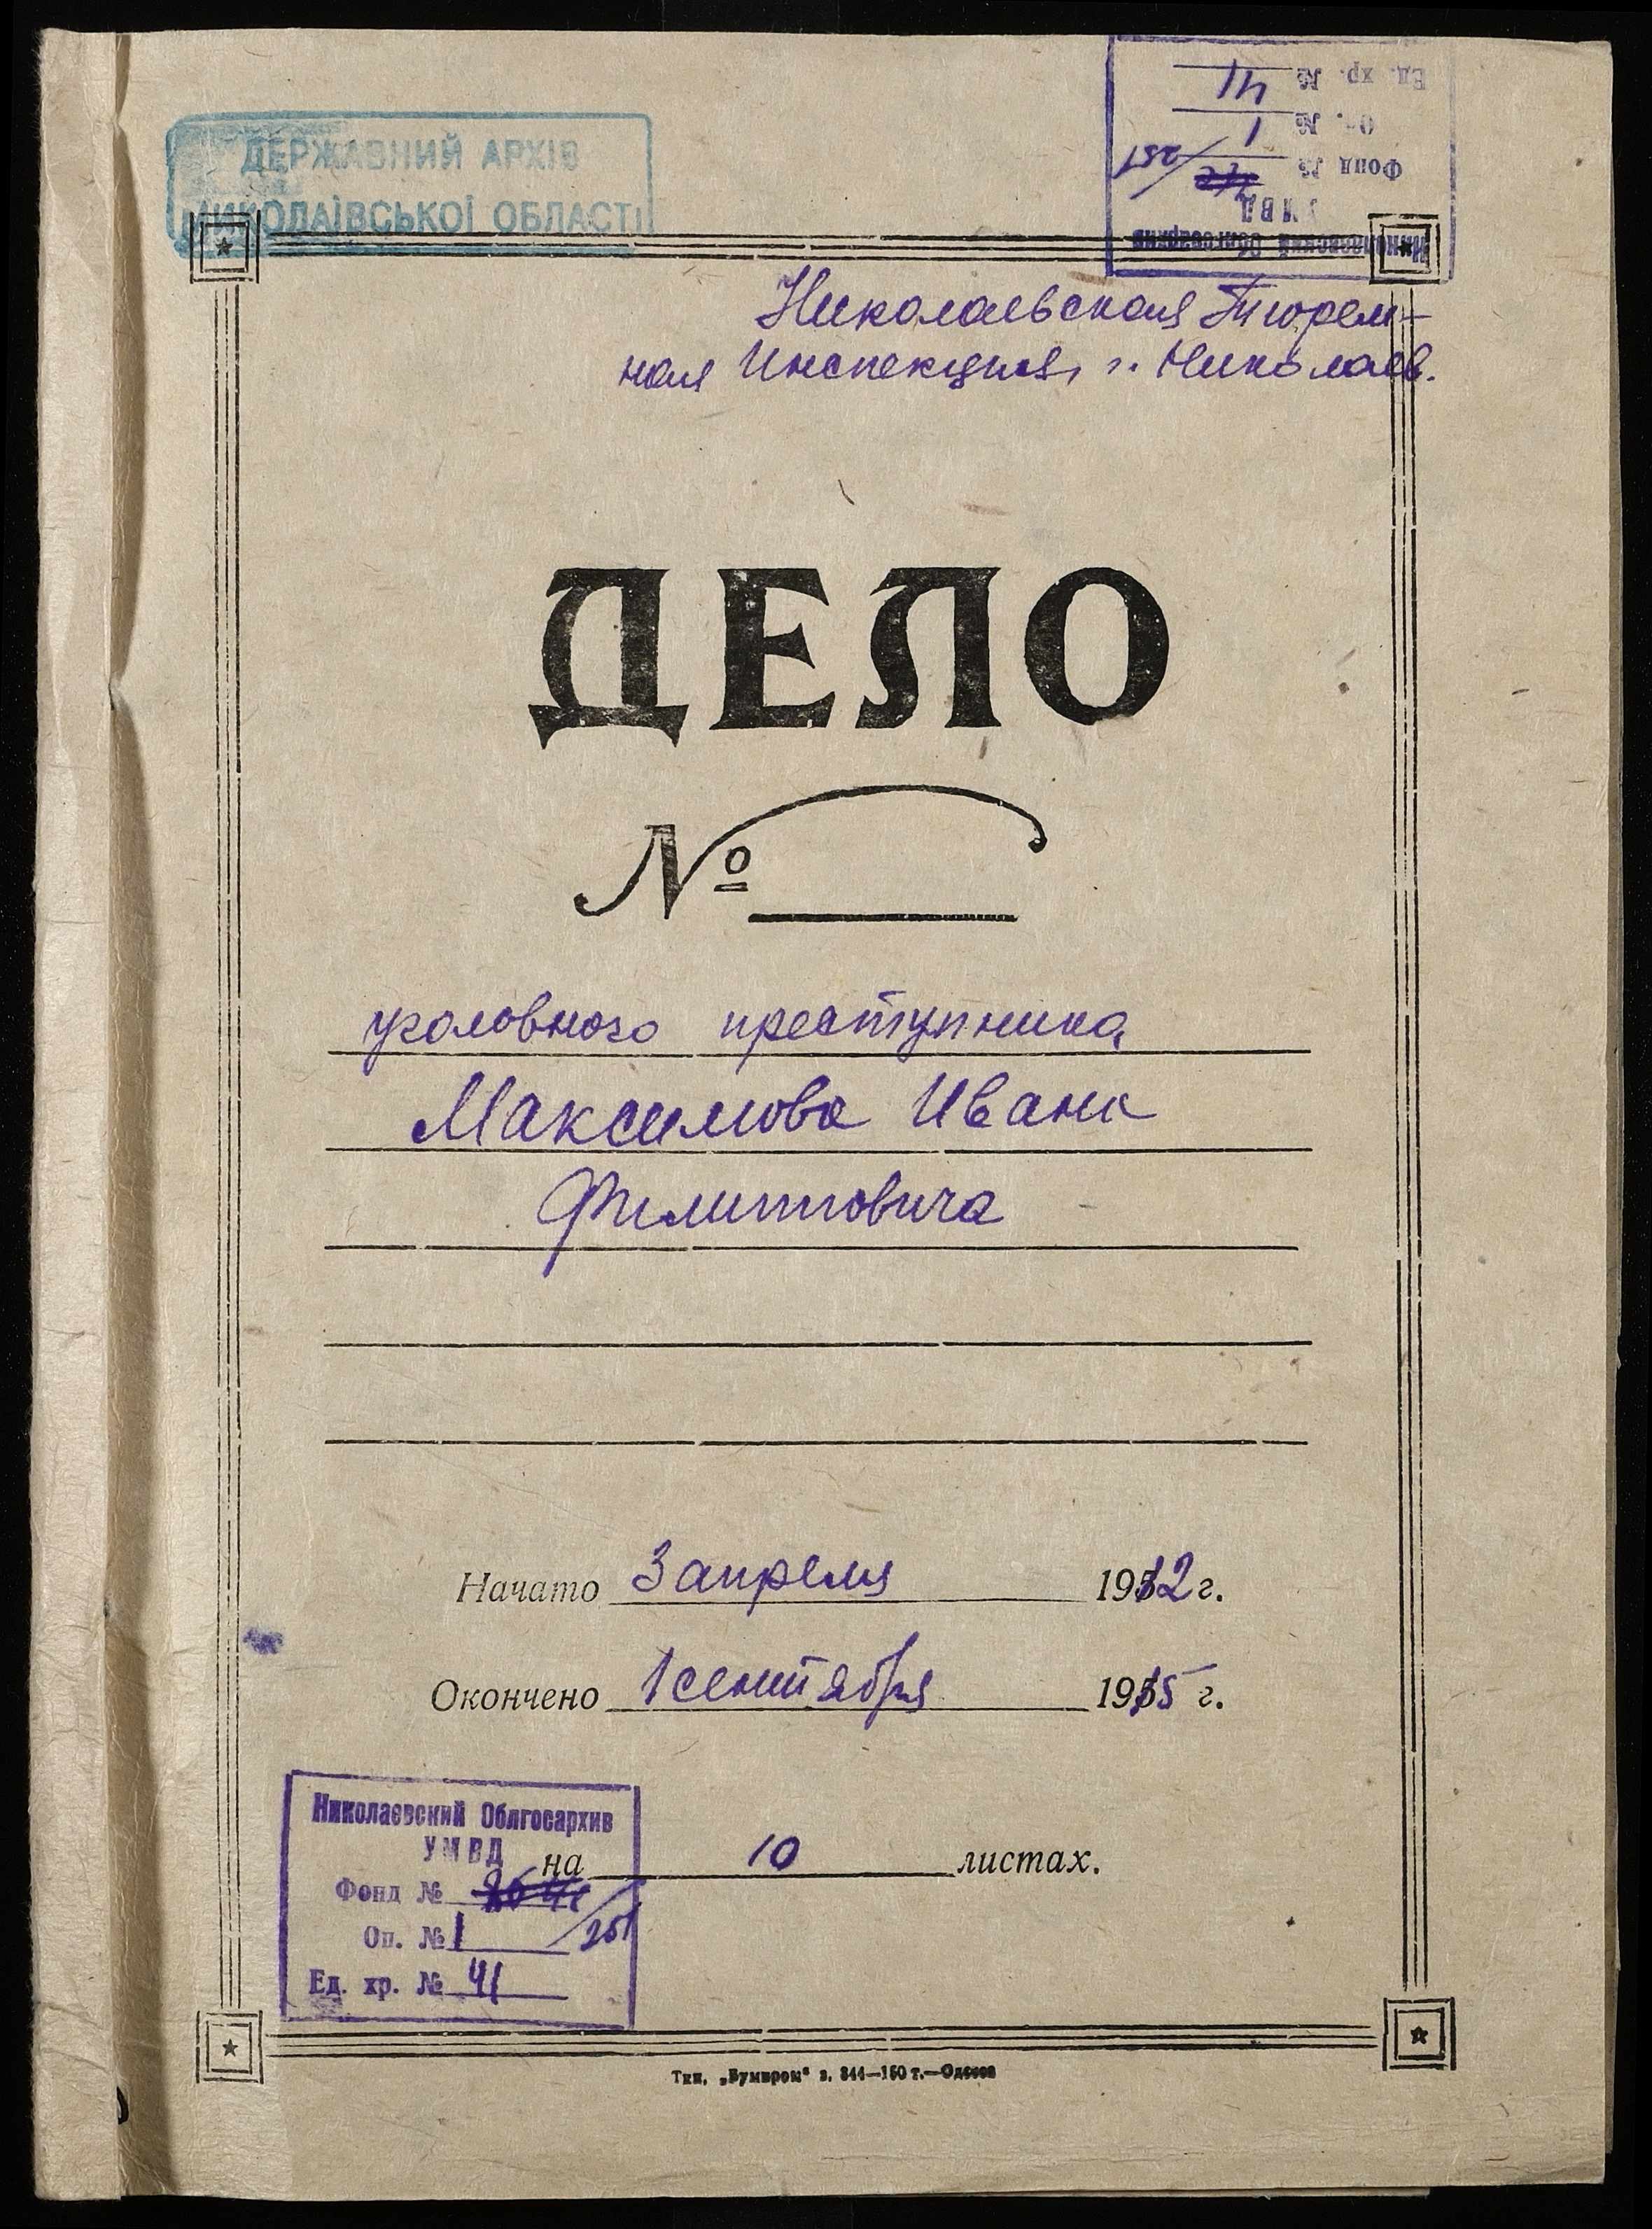 ДЕРЖАВНИЙ АРХІВ
МИКОЛАЇВСЬКОЇ ОБЛАСТІ
Николаевский Облгосархив
УМВД
Фонд № 251
Оп. № 1
Ед. хр. № 41
Николаевская Тюрем-
ная Инспекция, г. Николаев.
ДЕЛО
№
уголовного преступника
Максимова Ивана
Филипповича
Начато 3 апреля 1912 г.
Окончено 1 сентября 1915 г.
на 10 листах.
Николаевский Облгосархив
УМВД
Фонд №
Оп. № 1 / 251
Ед. хр. № 41
Тип. „Бумпром“ з. 844—150 т.—Одесса